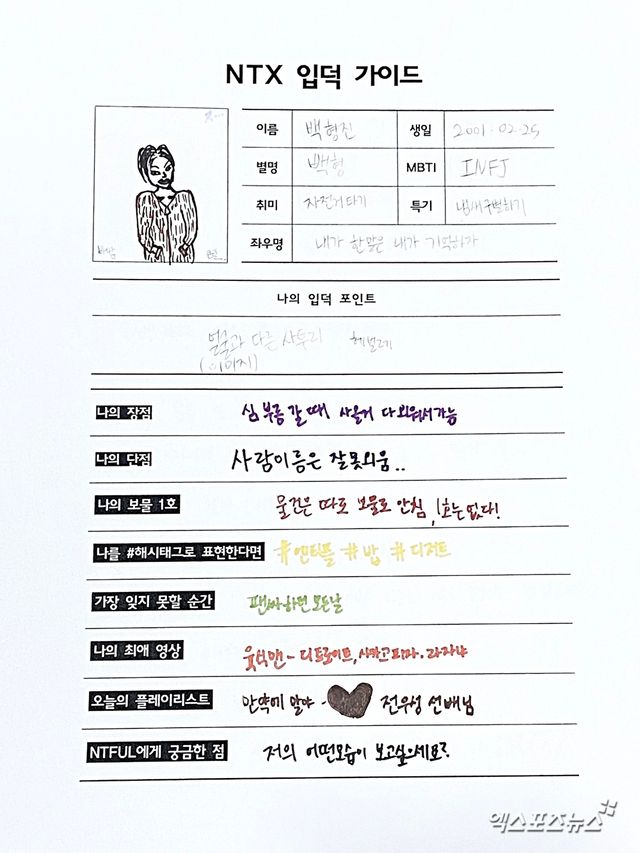 NTX 입덕 가이드
이름 백형진 생일 2001.02.25
별명 백형 MBTI INFJ
취미 자전거타기 특기 냄새구별하기
좌우명 내가 한 말은 내가 기억하자
나의 입덕 포인트
얼굴과 다른 사투리 헤벌레
(이미지)
나의 장점 심부름갈때 사올거 다 외워서 가능
나의 단점 사람이름은 잘못외움..
나의 보물 1호 물건은 따로 보물로 안침, 1호는 없다!
나를 #해시태그로 표현한다면 #엔티플 #밥 #디저트
가장 잊지 못할 순간 팬싸하면 모든날
나의 최애 영상 웃석맨 - 디트로이트, 시카고피자.라자냐
오늘의 플레이리스트 만약에 말야 - 전우성 선배님
NTFUL에게 궁금한 점 저의 어떤모습이 보고싶으세요?
엑스포츠뉴스